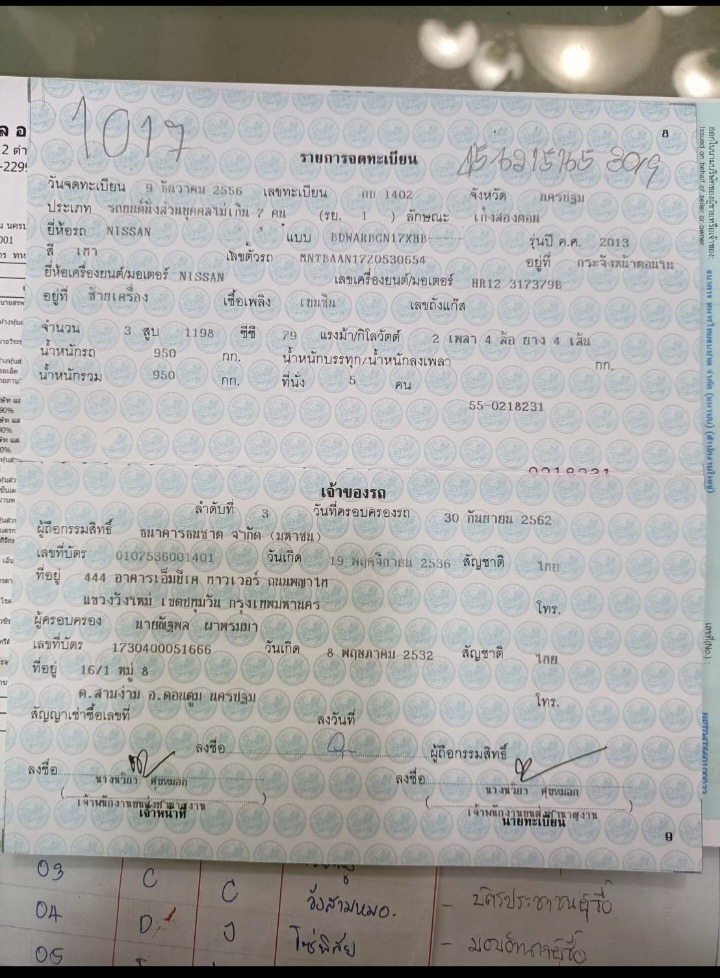 1017
8
รายการจดทะเบียน
วันจดทะเบียน 9 ธันวาคม 2556 เลขทะเบียน 1402 จังหวัด นครปฐม
ประเภท รถยนต์นั่งส่วนบุคคลไม่เกิน 7 คน (รย. 1 ) ลักษณะ เก๋งสองตอน
ยี่ห้อรถ NISSAN แบบ BDWARBGN17XHB รุ่นปี ค.ศ. 2013
สี เทา เลขตัวรถ MNTBAAN17Z0530654 อยู่ที่ กระจังหน้าตอนใน
ยี่ห้อเครื่องยนต์/มอเตอร์ NISSAN เลขเครื่องยนต์/มอเตอร์ HR12 317379B
อยู่ที่ ซ้ายเครื่อง เชื้อเพลิง เบนซิน เลขถังแก๊ส
จำนวน 3 สูบ 1198 ซีซี 79 แรงม้า/กิโลวัตต์ 2 เพลา 4 ล้อ ยาง 4 เส้น
น้ำหนักรถ 950 กก. น้ำหนักบรรทุก/น้ำหนักลงเพลา กก.
น้ำหนักรวม 950 กก. ที่นั่ง 5 คน
55-0218231
เจ้าของรถ
ลำดับที่ 3 วันที่ครอบครองรถ 30 กันยายน 2562
ผู้ถือกรรมสิทธิ์ ธนาคารธนชาต จำกัด (มหาชน)
เลขที่บัตร 0107536001401 วันเกิด 19 พฤศจิกายน 2536 สัญชาติ ไทย
ที่อยู่ 444 อาคารเอ็มบีเค ทาวเวอร์ ถนนพญาไท
แขวงวังใหม่ เขตปทุมวัน กรุงเทพมหานคร โทร.
ผู้ครอบครอง นายณัฐพล ผาพรมมา
เลขที่บัตร 1730400051666 วันเกิด 8 พฤษภาคม 2532 สัญชาติ ไทย
ที่อยู่ 16/1 หมู่ 8
ต.สามง่าม อ.ดอนตูม นครปฐม โทร.
สัญญาเช่าซื้อเลขที่ ลงวันที่
ลงชื่อ ผู้ถือกรรมสิทธิ์
ลงชื่อ ลงชื่อ
เจ้าหน้าที่ นายทะเบียน
9
03 C C
04 D วังสามหมอ. - บัตรประชาชนผู้ซื้อ
05 โซ่พิสัย - มอบอำนาจผู้ซื้อ